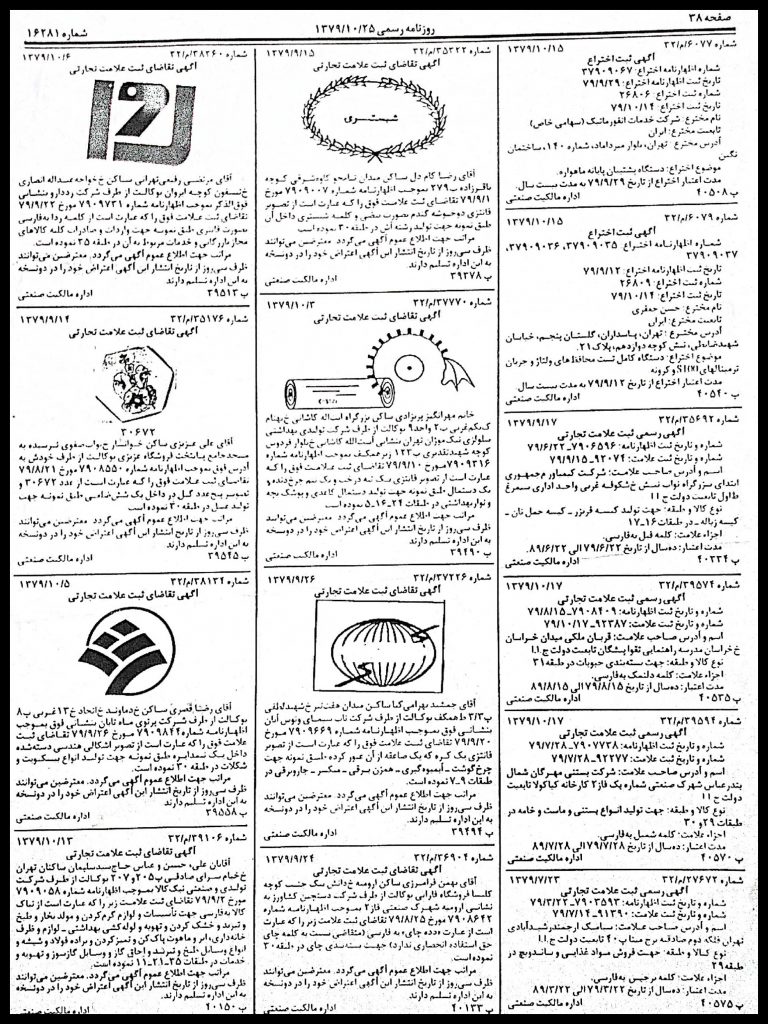 صفحه ۳۸
روزنامه رسمی ۱۳۷۹/۱۰/۲۵
شماره ۱۶۲۸۱
شماره ۶۰۷۷/م/۳۲ ۱۳۷۹/۱۰/۱۵
آگهی ثبت اختراع
شماره اظهارنامه اختراع: ۳۷۹۰۹۰۶۷
تاریخ ثبت اظهارنامه اختراع: ۷۹/۹/۲۹
شماره ثبت اختراع: ۲۶۸۰۶
تاریخ ثبت اختراع: ۷۹/۱۰/۱۴
نام مخترع: شرکت خدمات انفورماتیک (سهامی خاص)
تابعیت مخترع: ایران
آدرس مخترع: تهران، بلوار میرداماد، شماره ۱۴۰، ساختمان
نگین
موضوع اختراع: دستگاه پشتیبان پایانه ماهواره.
مدت اعتبار اختراع از تاریخ ۷۹/۹/۲۹ به مدت بیست سال.
پ ۴۰۵۰۸ اداره مالکیت صنعتی
شماره ۶۰۷۹/م/۳۲ ۱۳۷۹/۱۰/۱۵
آگهی ثبت اختراع
شماره اظهارنامه اختراع: ۳۷۹۰۹۰۳۵، ۳۷۹۰۹۰۳۶،
۳۷۹۰۹۰۳۷
تاریخ ثبت اظهارنامه اختراع: ۷۹/۹/۱۲
شماره ثبت اختراع: ۲۶۸۰۹
تاریخ ثبت اختراع: ۷۹/۱۰/۱۴
نام مخترع: حسن جعفری
تابعیت مخترع: ایران
آدرس مخترع: تهران، پاسداران، گلستان پنجم، خیابان
شهید ضابطی، نبش کوچه دوازدهم، پلاک ۲۱.
موضوع اختراع: دستگاه کامل تست محافظ‌های ولتاژ و جریان
ترمینالهای و کرونه
مدت اعتبار اختراع از تاریخ ۷۹/۹/۱۲ به مدت بیست سال
پ ۴۰۵۴۰ اداره مالکیت صنعتی
شماره ۳۵۶۹۲/م/۳۲ ۱۳۷۹/۹/۱۷
آگهی رسمی ثبت علامت تجارتی
شماره و تاریخ ثبت اظهارنامه: ۷۹۰۶۵۹۶ـ۷۹/۶/۲۲
شماره و تاریخ ثبت علامت: ۹۳۰۷۴ـ۷۹/۹/۱۵
اسم و آدرس صاحب علامت: شرکت کیمیاور م جمهوری
ابتدای سزرگراه نواب نبش خ شکوفه غربی واحد اداری سیمرغ
ط اول تابعیت دولت ج ا ا
نوع کالا و طبقه: جهت تولید کیسه فریزر ـ کیسه حمل نان ـ
کیسه زباله ـ در طبقات ۱۶ـ۱۷
اجزاء علامت: کلمه قبل به فارسی.
مدت اعتبار: ده سال از تاریخ ۷۹/۶/۲۲ الی ۸۹/۶/۲۲.
پ ۴۰۲۳۴ اداره مالکیت صنعتی
شماره ۳۹۵۷۴/م/۳۲ ۱۳۷۹/۱۰/۱۷
آگهی رسمی ثبت علامت تجارتی
شماره و تاریخ ثبت اظهارنامه: ۷۹۰۸۴۰۹ـ۷۹/۸/۱۵
شماره و تاریخ ثبت علامت: ۹۲۳۸۷ـ۷۹/۱۰/۱۷
اسم و آدرس صاحب علامت: قربان ملکی میدان خراسان
خ خراسان مدرسه راهنمایی تقوا پیشگان تابعیت دولت ج.ا.ا
نوع کالا و طبقه: جهت بسته‌بندی حبوبات در طبقه ۳۱
اجزاء علامت: کلمه دلنمک به فارسی.
مدت اعتبار: ده سال از تاریخ ۷۹/۸/۱۵ الی ۸۹/۸/۱۵
پ ۴۰۵۳۵ اداره مالکیت صنعتی
شماره ۳۹۵۹۴/م/۳۲ ۱۳۷۹/۱۰/۱۷
آگهی رسمی ثبت علامت تجارتی
شماره و تاریخ ثبت اظهارنامه: ۷۹۰۷۷۳۸ـ۷۹/۷/۲۸
شماره و تاریخ ثبت علامت: ۹۲۲۷۷ـ۷۹/۷/۲۸
اسم و آدرس صاحب علامت: شرکت بستنی مهرگان شمال
بندرعباس شهرک صنعتی شماره یک فاز ۲ کارخانه کیاکولا تابعیت
دولت ج ا ا
نوع کالا و طبقه: جهت تولید انواع بستنی و ماست و خامه در
طبقات ۲۹ و ۳۰
اجزاء علامت: کلمه شمیل به فارسی.
مدت اعتبار: ده سال از تاریخ ۷۹/۷/۲۸ الی ۸۹/۷/۲۸
پ ۴۰۵۷۰ اداره مالکیت صنعتی
شماره ۲۷۶۷۲/م/۳۲ ۱۳۷۹/۷/۲۳
آگهی رسمی ثبت علامت تجارتی
شماره و تاریخ ثبت اظهارنامه: ۷۹۰۳۵۹۳ـ۷۹/۳/۲۲
شماره و تاریخ ثبت علامت: ۹۱۳۹۰ـ۷۹/۷/۱۴
اسم و آدرس صاحب علامت: سیامک ارجمند رشیدآبادی
تهران فلکه دوم صادقیه برج مینا پ ۴۰ تابعیت دولت ج.ا.ا
نوع کالا و طبقه: جهت فروش مواد غذایی و ساندویچ در
طبقه ۲۹
اجزاء علامت: کلمه نرجیس به فارسی.
مدت اعتبار: ده سال از تاریخ ۷۹/۳/۲۲ الی ۸۹/۳/۲۲
پ ۴۰۵۷۵ اداره مالکیت صنعتی
شماره ۳۵۳۲۲/م/۳۲ ۱۳۷۹/۹/۱۵
آگهی تقاضای ثبت علامت تجارتی
شبستری
آقای رضا کام دل ساکن میدان کوچه
باقرزاده پ ۲۷۹ بموجب اظهارنامه شماره ۷۹۰۹۰۰۷ مورخ
۷۹/۹/۱ تقاضای ثبت علامت فوق را که عبارت است از تصویر
فانتزی دو خوشه گندم بصورت بیضی و کلمه شبستری داخل آن
طبق نمونه جهت تولید رشته آش در طبقه ۳۰ نموده است.
مراتب جهت اطلاع عموم آگهی می‌گردد. معترضین می‌توانند
ظرف سی روز از تاریخ انتشار این آگهی اعتراض خود را در دو نسخه
به این اداره تسلیم دارند.
پ ۳۹۳۷۸ اداره مالکیت صنعتی
شماره ۳۷۷۷۰/م/۳۲ ۱۳۷۹/۱۰/۳
آگهی تقاضای ثبت علامت تجارتی
خانم مهرانگیز پریزادی ساکن بزرگراه اسداله کاشانی خ بهنام
ک یکم غربی پ ۲ واحد ۹ بوکالت از طرف شرکت تولیدی بهداشتی
سلولزی نیک موژان تهران بنشانی آیت‌الله کاشانی خ بلوار فردوس
کوچه شهید تقدیری پ ۱۲۳ زیر همکف بموجب اظهارنامه شماره
۷۹۰۹۳۱۶ مورخ ۷۹/۹/۱۰ تقاضای ثبت علامت فوق را که
عبارت است از تصویر فانتزی یک تنه درخت و یک نیم چرخ‌دنده و
یک دستمال طبق نمونه جهت تولید دستمال کاغذی و پوشک بچه
و نوار بهداشتی در طبقات ۲۴ـ۱۶ـ۵ نموده است.
مراتب جهت اطلاع عموم آگهی می‌گردد. معترضین می‌توانند
ظرف سی روز از تاریخ انتشار این آگهی اعتراض خود را در دو نسخه
به این اداره تسلیم دارند.
پ ۳۹۴۹۰ اداره مالکیت صنعتی
شماره ۳۷۲۲۶/م/۳۲ ۱۳۷۹/۹/۲۶
آگهی تقاضای ثبت علامت تجارتی
آقای جمشید بهرامی کیا ساکن میدان هفت‌تیر خ شهید لطفی
پ ۳/۳ ط همکف بوکالت از طرف شرکت تاب سیمای ونوس آیان
بنشانی فوق بموجب اظهارنامه شماره ۷۹۰۹۶۶۹ مورخ
۷۹/۹/۲۰ تقاضای ثبت علامت فوق را که عبارت است از تصویر
فانتزی یک کره که یک صاعقه از آن عبور کرده طبق نمونه جهت
چرخ گوشت ـ آبمیوه‌گیری ـ همزن برقی ـ میکسر ـ جاروبرقی در
طبقات ۹ـ۷ نموده است.
مراتب جهت اطلاع عموم آگهی می‌گردد. معترضین می‌توانند
ظرف سی روز از تاریخ انتشار این آگهی اعتراض خود را در دو نسخه
به این اداره تسلیم دارند.
پ ۳۹۴۹۴ اداره مالکیت صنعتی
شماره ۳۶۹۰۴/م/۳۲ ۱۳۷۹/۹/۲۴
آگهی تقاضای ثبت علامت تجارتی
آقای بهمن فرامرزی ساکن ارومیه خ دانش یک جنب کوچه
کلیسا فروشگاه فارابی بوکالت از طرف شرکت دستچین کشاورز به
نشانی ارومیه شهرک صنعتی فاز ۲ بموجب اظهارنامه شماره
۷۹۰۸۶۴۲ مورخ ۷۹/۸/۲۵ تقاضای ثبت علامت زیر را که عبارت
است از عبارت «دده چای» به فارسی (متقاضی نسبت به کلمه چای
حق استفاده انحصاری ندارد) جهت بسته‌بندی چای در طبقه ۳۰
نموده است.
مراتب جهت اطلاع عموم آگهی می‌گردد. معترضین می‌توانند
ظرف سی روز از تاریخ انتشار این آگهی اعتراض خود را در دو نسخه
به این اداره تسلیم دارند.
پ ۴۰۱۳۳ اداره مالکیت صنعتی
شماره ۳۸۲۶۰/م/۳۲ ۱۳۷۹/۱۰/۶
آگهی تقاضای ثبت علامت تجارتی
آقای مرتضی رفیعی تهرانی ساکن خ خواجه عبداله انصاری
خ نیسفون کوچه ایروان بوکالت از طرف شرکت رددارو بنشانی
فوق‌الذکر بموجب اظهارنامه شماره ۷۹۰۹۷۳۱ مورخ ۷۹/۹/۲۲
تقاضای ثبت علامت فوق را که عبارت است از کلمه ردا به فارسی
بصورت فانتزی طبق نمونه جهت واردات و صادرات کلیه کالاهای
مجاز بازرگانی و خدمات مربوط به آن در طبقه ۳۵ نموده است.
مراتب جهت اطلاع عموم آگهی می‌گردد. معترضین می‌توانند
ظرف سی روز از تاریخ انتشار این آگهی اعتراض خود را در دو نسخه
به این اداره تسلیم دارند
پ ۳۹۵۱۳ اداره مالکیت صنعتی
شماره ۳۵۱۷۶/م/۳۲ ۱۳۷۹/۹/۱۴
آگهی تقاضای ثبت علامت تجارتی
۳۰۶۷۲
آقای علی عزیزی ساکن خوانسار خ نواب صفوی نرسیده به
مسجد جامع پایتخت فروشگاه عزیزی بوکالت از طرف خودش به
آدرس فوق بموجب اظهارنامه شماره ۷۹۰۸۵۵۰ مورخ ۷۹/۸/۲۱
تقاضای ثبت علامت فوق را که عبارت است از عدد ۳۰۶۷۲ و
تصویر پنج عدد گل در داخل یک شش ضلعی طبق نمونه جهت
تولید عسل در طبقه ۳۰ نموده است.
مراتب جهت اطلاع عموم آگهی می‌گردد. معترضین می‌توانند
ظرف سی روز از تاریخ انتشار این آگهی اعتراض خود را در دو نسخه
به این اداره تسلیم دارند.
پ ۳۹۵۴۵ اداره مالکیت صنعتی
شماره ۳۸۱۳۴/م/۳۲ ۱۳۷۹/۱۰/۵
آگهی تقاضای ثبت علامت تجارتی
آقای رضا قصری ساکن خ دماوند خ اتحاد خ ۱۳ غربی پ ۸
بوکالت از طرف شرکت پرتوی ماه تابان بنشانی فوق بموجب
اظهارنامه شماره ۷۹۰۹۸۴۴ مورخ ۷۹/۹/۲۶ تقاضای ثبت
علامت فوق را که عبارت است از تصویر اشکالی هندسی دسته‌شده
داخل یک نیمدایره طبق نمونه جهت تولید انواع بیسکویت و
شکلات در طبقه ۳۰ نموده است.
مراتب جهت اطلاع عموم آگهی می‌گردد. معترضین می‌توانند
ظرف سی روز از تاریخ انتشار این آگهی اعتراض خود را در دو نسخه
به این اداره تسلیم دارند
پ ۳۹۵۵۸ اداره مالکیت صنعتی
شماره ۳۹۱۰۶/م/۳۲ ۱۳۷۹/۱۰/۱۳
آگهی تقاضای ثبت علامت تجارتی
آقایان علی، حسن و عباس حاج سیدسلیمان ساکنان تهران
خ خیام سرای صادقی پ ۲۰۵ و ۳۰۷ بوکالت از طرف شرکت
تولیدی و صنعتی نیک کالا بموجب اظهارنامه شماره ۷۹۰۹۰۵۸
مورخ ۷۹/۹/۲ تقاضای ثبت علامت زیر را که عبارت است از نیاک
کالا به فارسی جهت تأسیسات و لوازم گرم کردن و مولد بخار و طبخ
و تبرید و خشک کردن و تهویه و لوله‌کشی بهداشتی ـ لوازم و ظروف
خانه‌داری، ابر و ماهوت پاک‌کن و تمیز کردن و براده فولاد و شیشه و
انواع وسایل طبخ و تبرید و اجاق گاز و وسایل گازسوز و تهویه و
خدمات در طبقات ۳۵ـ۲۱ـ۱۱ نموده است.
مراتب جهت اطلاع عموم آگهی می‌گردد. معترضین می‌توانند
ظرف سی روز از تاریخ انتشار این آگهی اعتراض خود را در دو نسخه
به این اداره تسلیم دارند.
پ ۴۰۱۵۰ اداره مالکیت صنعتی